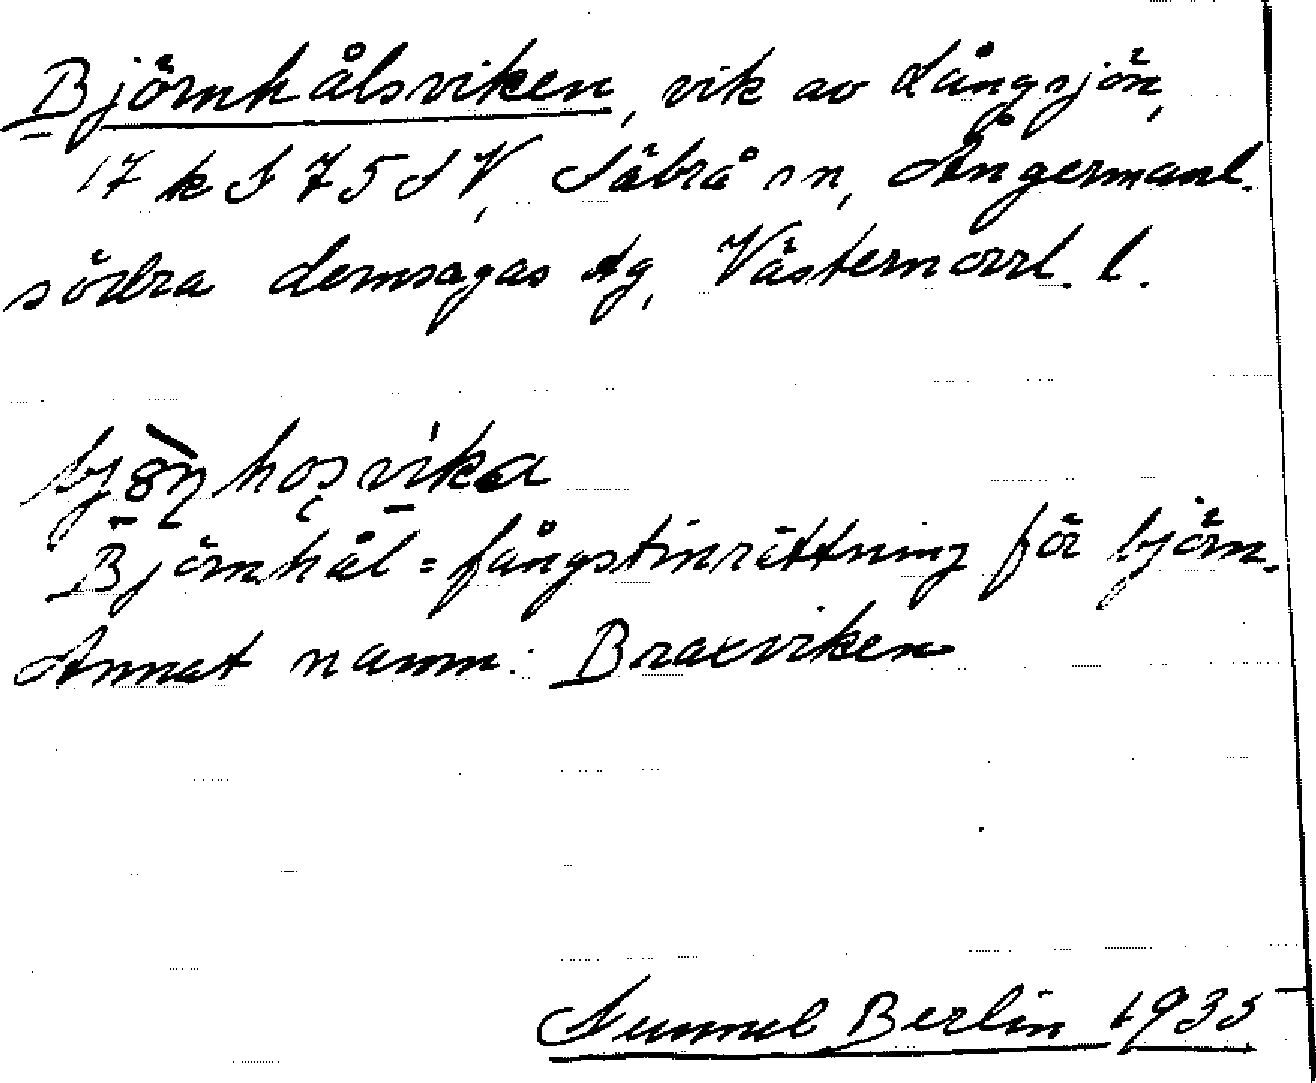 Björnhålsviken, vik av Långsjön,
17 k S 75 SV, Säbrå sn, Ångermanl.
södra domsagas tg, Västernorrl. l.
Björnhål = fångstinrättning för björn.
Annat namn: Braxviken
Berlin 1935